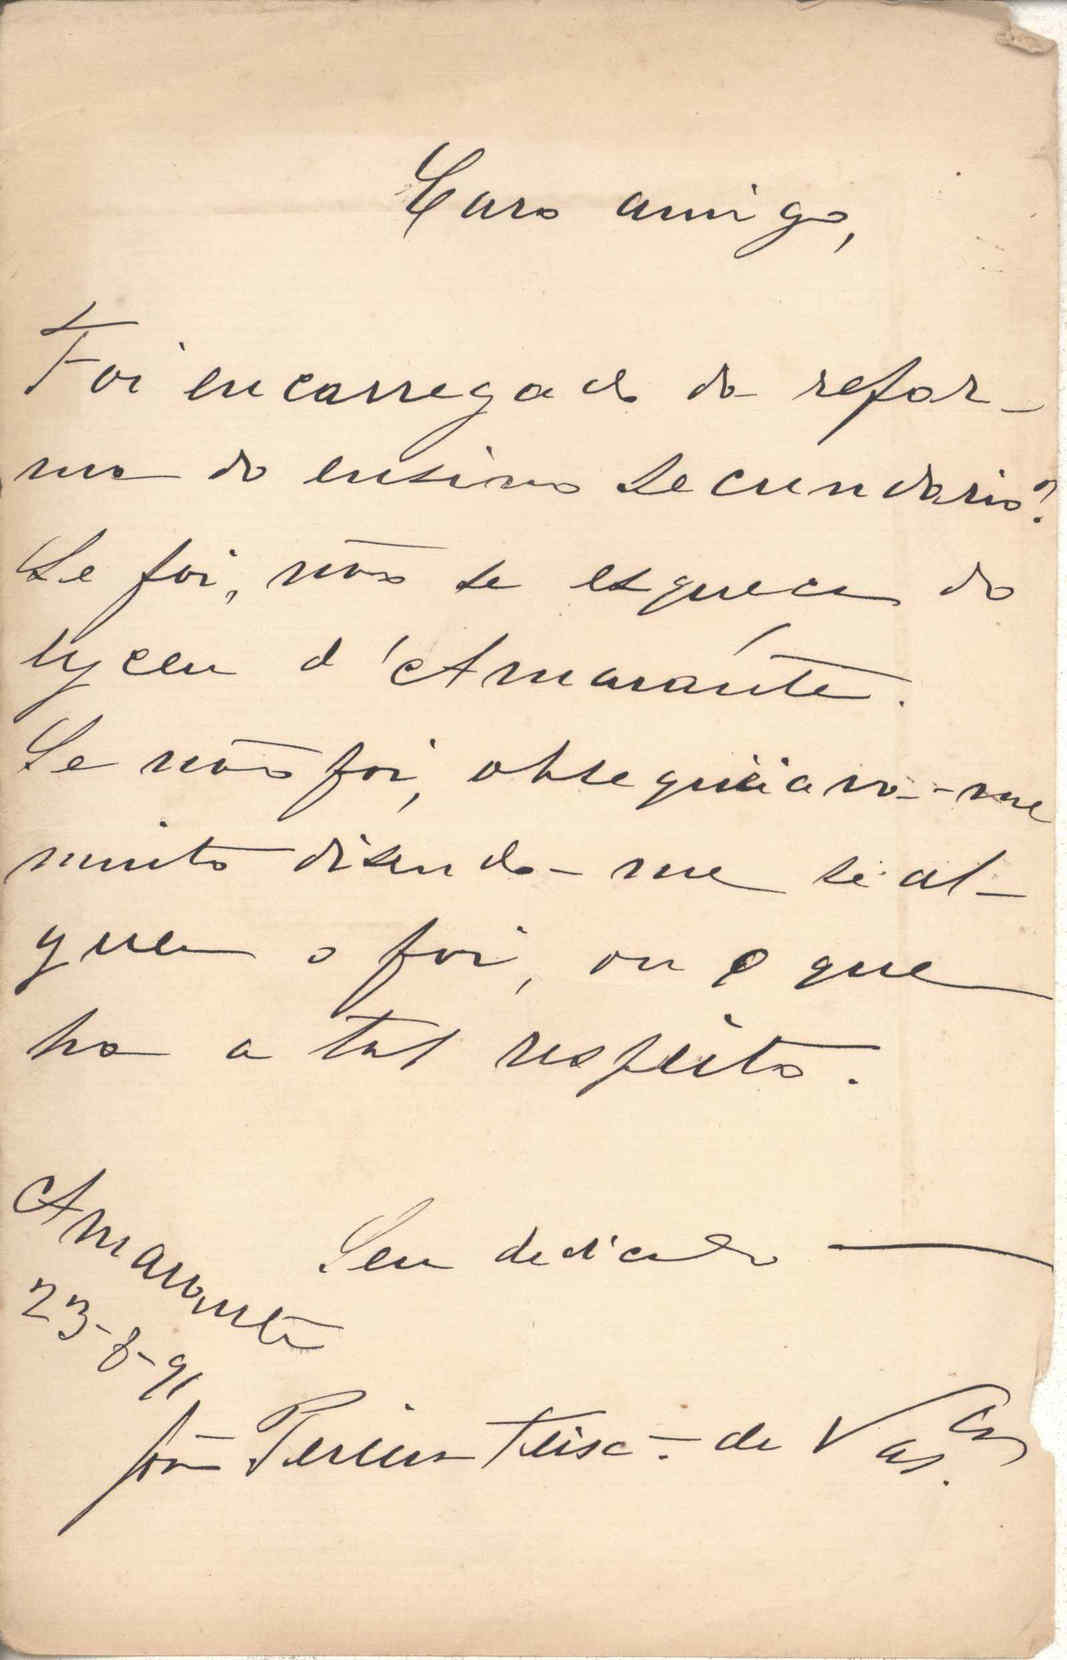 Caro amigo,
Foi encarregado da refor-
ma do ensino secundario?
Se foi, não se esqueça do
lyceu d'Amarante.
Se não foi, obsequiava-me
muito disendo-me se al-
guem o foi, ou o que
ha a tal respeito.
Amarante
23-8-91
Seu dedicado
João Pereira Teixª de Vas.cos